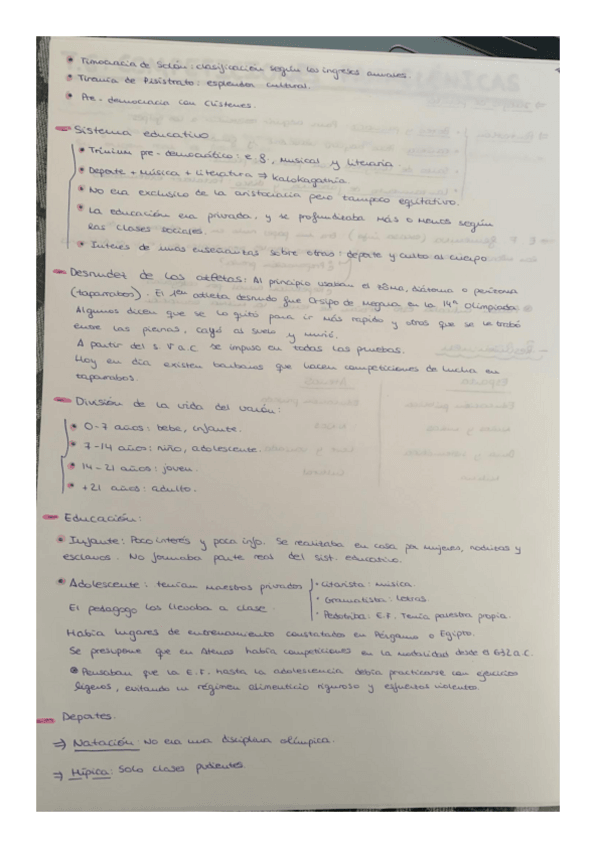 Timocracia de Solón: clasificación según los ingresos anuales.
Tiranía de Pisístrato: esplendor cultural.
Pre-democracia con Clístenes.
Sistema educativo
Trivium pre-democrático: e.g., musical y literaria.
Deporte + música + literatura ⇒ kalokagathia
No era exclusivo de la aristocracia pero tampoco equitativo.
La educación era privada, y se profundizaba más o menos según
las clases sociales.
Interés de unas enseñanzas sobre otras: deporte y culto al cuerpo
Desnudez de los atletas: Al principio usaban el zôma, diázoma o perizoma
(taparrabos). El 1er atleta desnudo fue Orsipo de Megara en la 14ª Olimpiada.
Algunos dicen que se lo quitó para ir más rápido y otros que se le trabó
entre las piernas, cayó al suelo y murió.
A partir del s V a.C se impuso en todas las pruebas.
Hoy en día existen bárbaros que hacen competiciones de lucha en
taparrabos.
División de la vida del varón:
0-7 años: bebé, infante.
7-14 años: niño, adolescente.
14-21 años: joven.
+21 años: adulto.
Educación:
Infante: Poco interés y poca info. Se realizaba en casa por mujeres, nodrizas y
esclavos. No formaba parte real del sist. educativo.
Adolescente: tenían maestros privados
· Citarista: música.
· Gramatista: letras.
· Pedotriba: E.F. Tenía palestra propia.
El pedagogo los llevaba a clase.
Había lugares de entrenamiento constatados en Pérgamo o Egipto.
Se presupone que en Atenas había competiciones en la modalidad desde el 632 a.C.
Pensaban que la E.F. hasta la adolescencia debía practicarse con ejercicios
ligeros, evitando un régimen alimenticio riguroso y esfuerzos violentos.
Deportes.
⇒ Natación: No era una disciplina olímpica.
⇒ Hípica: Solo clases pudientes.